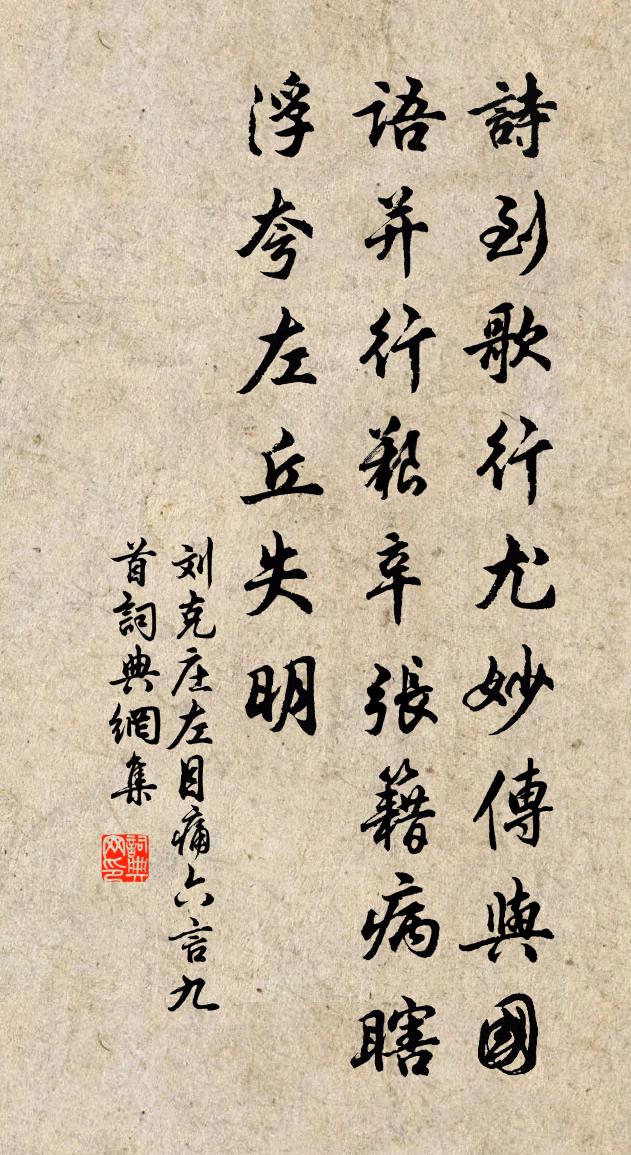 詩到歌行尤妙傳與國
語并行艱辛張籍病瞎
浮夸左丘失明
刘克庄左目痛六言九
首詞典網集
詞典
网印